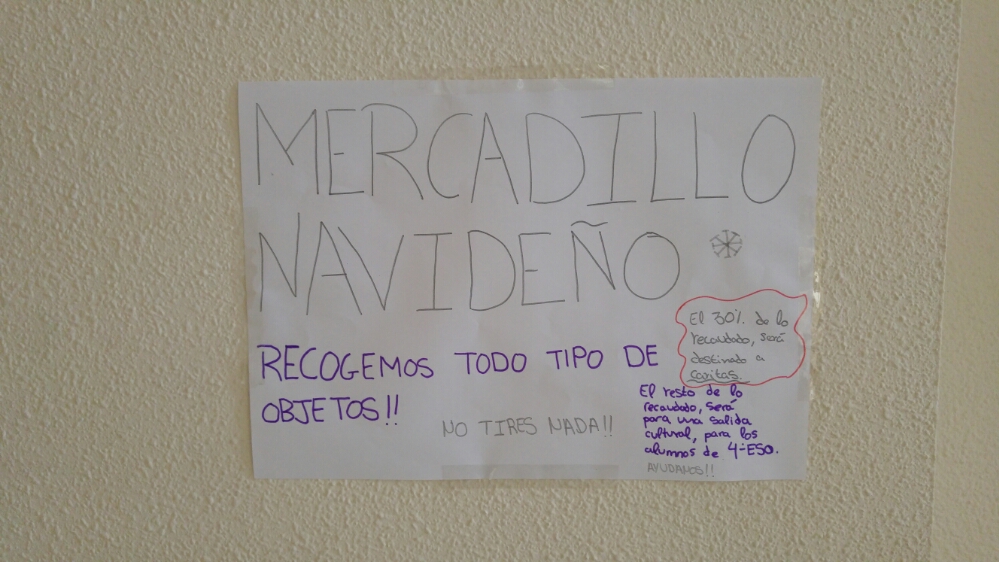 MERCADILLO
NAVIDEÑO
El 30% de lo
recaudado, será
destinado a
caritas.
RECOGEMOS TODO TIPO DE
OBJETOS!!
NO TIRES NADA!!
El resto de lo
recaudado, será
para una salida
cultural, para los
alumnos de 4ºESO.
AYUDANOS!!